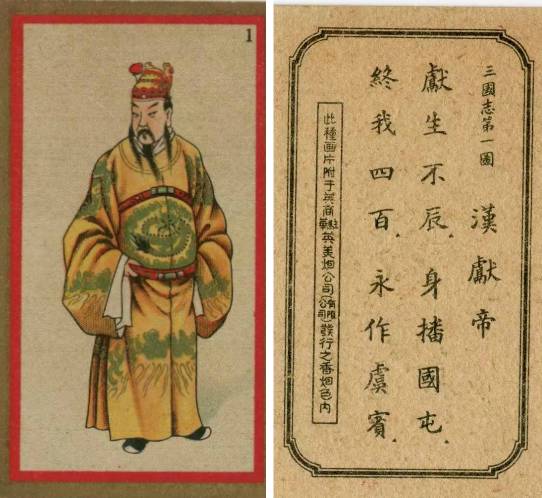 1
三國志第一圖
漢獻帝
獻生不辰身播國屯
終我四百永作虞賓
此種画片附于英商駐華英美烟公司(有限公司)發行之香烟包內